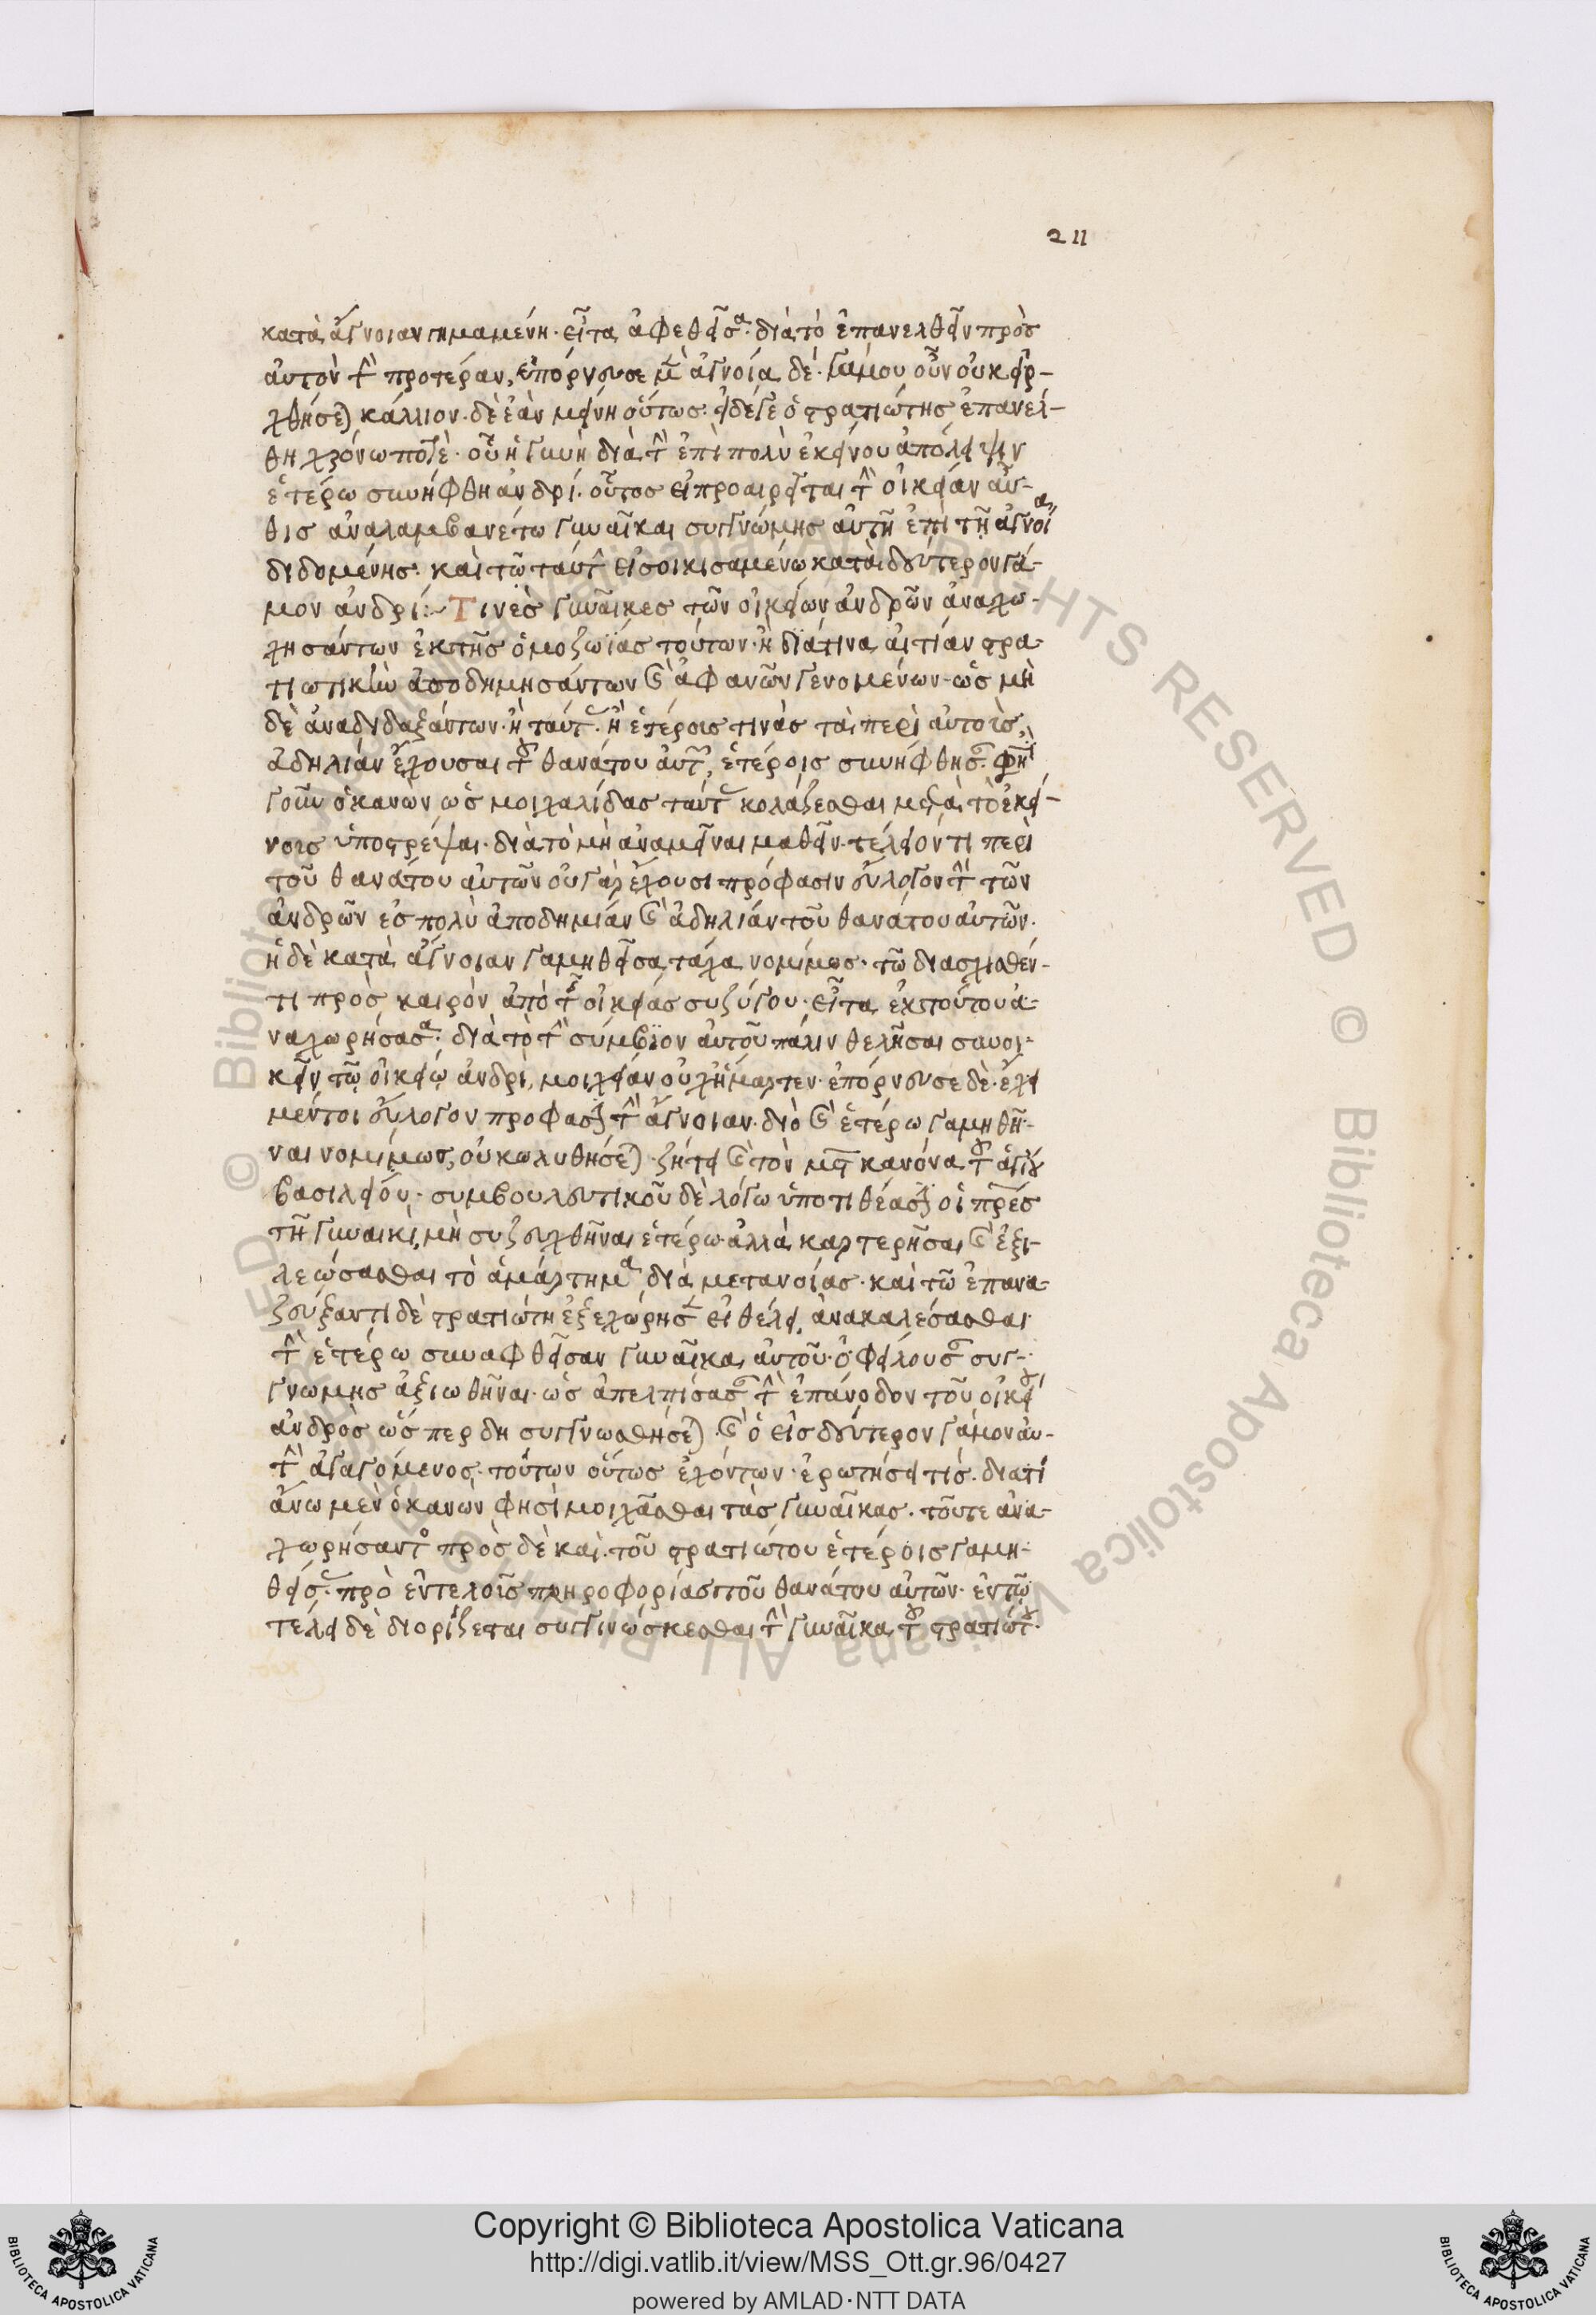 211
κατὰ ἄγνοιαν γημαμένη· εἶτα ἀφεθεῖσα· διὰ τὸ ἐπανελθεῖν πρὸς
αὐτὸν τὴν προτέραν, ἐπόρνευσε μὲν ἀγνοία δέ· γάμου οὖν οὐκ εἰρ-
χθήσεται κάλλιον· δὲ ἐὰν μείνη οὕτως· εἰ δέ γε ὁ στρατιώτης ἐπανέλ-
θη χρόνω ποτὲ· οὗ ἡ γυνὴ διὰ τὴν ἐπὶ πολὺ ἐκείνου ἀπόλειψιν
ἑτέρω συνήφθη ἀνδρί· οὗτος εἰ προαιρεῖται τὴν οἰκείαν αὖ-
θις ἀναλαμβανέτω γυναῖκα συγγνώμης αὐτῆ ἐπὶ τῆ ἀγνοία
διδομένης· καὶ τῶ ταύτην εἰσοικισαμένω κατὰ δεύτερον γά-
μον ἀνδρί:~ Τινὲς γυναῖκες τῶν οἰκείων ἀνδρῶν ἀναχω-
ρησάντων ἐκ τῆς ὁμοζωΐας τούτων· ἢ διά τινα αἰτίαν στρα-
τιωτικὴν ἀποδημησάντων καὶ ἀφανῶν γενομένων· ὡς μὴ
δὲ ἀναδιδαξάντων· ἢ ταύτας· ἢ ἑτέρους τινὰς τὰ περὶ αὐτοὺς,
ἀδηλίαν ἔχουσαι τοῦ θανάτου αὐτῶν, ἑτέροις συνήφθησαν· φησὶ
γοῦν ὁ κανὼν ὡς μοιχαλίδας ταύτας κολάζεσθαι μετὰ τὸ ἐκεί-
νους ὑποστρέψαι· διὰ τὸ μὴ ἀναμεῖναι μαθεῖν· τέλειόν τι περὶ
τοῦ θανάτου αὐτῶν οὐ γὰρ ἔχουσι πρόφασιν εὔλογον τὴν τῶν
ἀνδρῶν ἐς πολὺ ἀποδημίαν καὶ ἀδηλίαν τοῦ θανάτου αὐτῶν·
ἡ δὲ κατὰ ἄγνοιαν γαμηθεῖσα τάχα νομίμως· τῶ διασχισθέν-
τι πρὸς καιρὸν ἀπὸ τῆς οἰκείας συζύγου· εἶτα ἐκ τούτου ἀ-
ναχωρήσασα· διὰ τὸ τὴν σύμβιον αὐτοῦ πάλιν θελῆσαι συνοι-
κεῖν τῶ οἰκείω ἀνδρὶ, μοιχείαν οὐχ ἥμαρτεν· ἐπόρνευσε δὲ· ἔχει
μέντοι εὔλογον πρόφασιν τὴν ἄγνοιαν· διὸ καὶ ἑτέρω γαμηθῆ-
ναι νομίμως, οὐ κωλυθήσεται· ζήτει καὶ τὸν μϛ κανόνα τοῦ ἁγίου
βασιλείου· συμβουλευτικοῦ δὲ λόγω ὑποτιθέασιν οἱ πατέρες
τῆ γυναικὶ, μὴ συζευχθῆναι ἑτέρω· ἀλλὰ καρτερῆσαι καὶ ἐξι-
λεώσασθαι τὸ ἁμάρτημα διὰ μετανοίας· καὶ τῶ ἐπανα-
ζεύξαντι δὲ στρατιώτη ἐξεχώρησαν εἰ θέλει, ἀνακαλέσασθαι
τὴν ἑτέρω συναφθεῖσαν γυναῖκα αὐτοῦ· ὀφείλουσαν συγ-
γνώμης ἀξιωθῆναι· ὡς ἀπελπίσασαν τὴν ἐπάνοδον τοῦ οἰκείου
ἀνδρὸς ὥσπερ δὴ συγγνωσθήσεται· καὶ ὁ εἰς δεύτερον γάμον αὐ-
τὴν ἀγαγόμενος· τούτων οὕτως ἐχόντων· ἐρωτήσει τίς· διατί
ἄνω μὲν ὁ κανὼν φησὶ μοιχᾶσθαι τὰς γυναῖκας· τοῦτε ἀνα-
χωρήσαντος πρὸς δὲ καὶ· τοῦ στρατιώτου ἑτέροις γαμη-
θείσας· πρὸ ἐντελοῦς πληροφορίας τοῦ θανάτου αὐτῶν· ἐν τῶ
τέλει δὲ διορίζεται συγγινώσκεσθαι τὴν γυναῖκα τοῦ στρατιώτου·
Copyright © Biblioteca Apostolica Vaticana
http://digi.vatlib.it/view/MSS_Ott.gr.96/0427
powered by AMLAD·NTT DATA